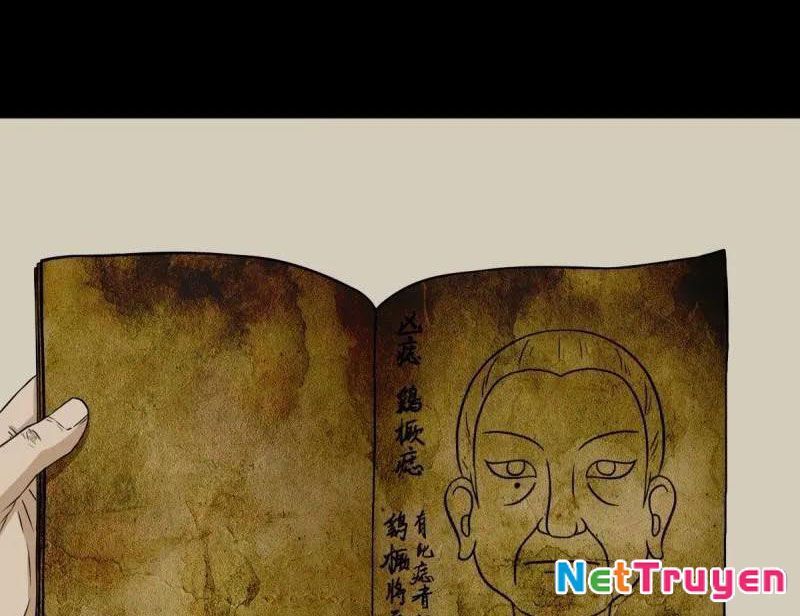 凶痣
鷄橛痣
有此痣者
鷄橛將
NetTruyen